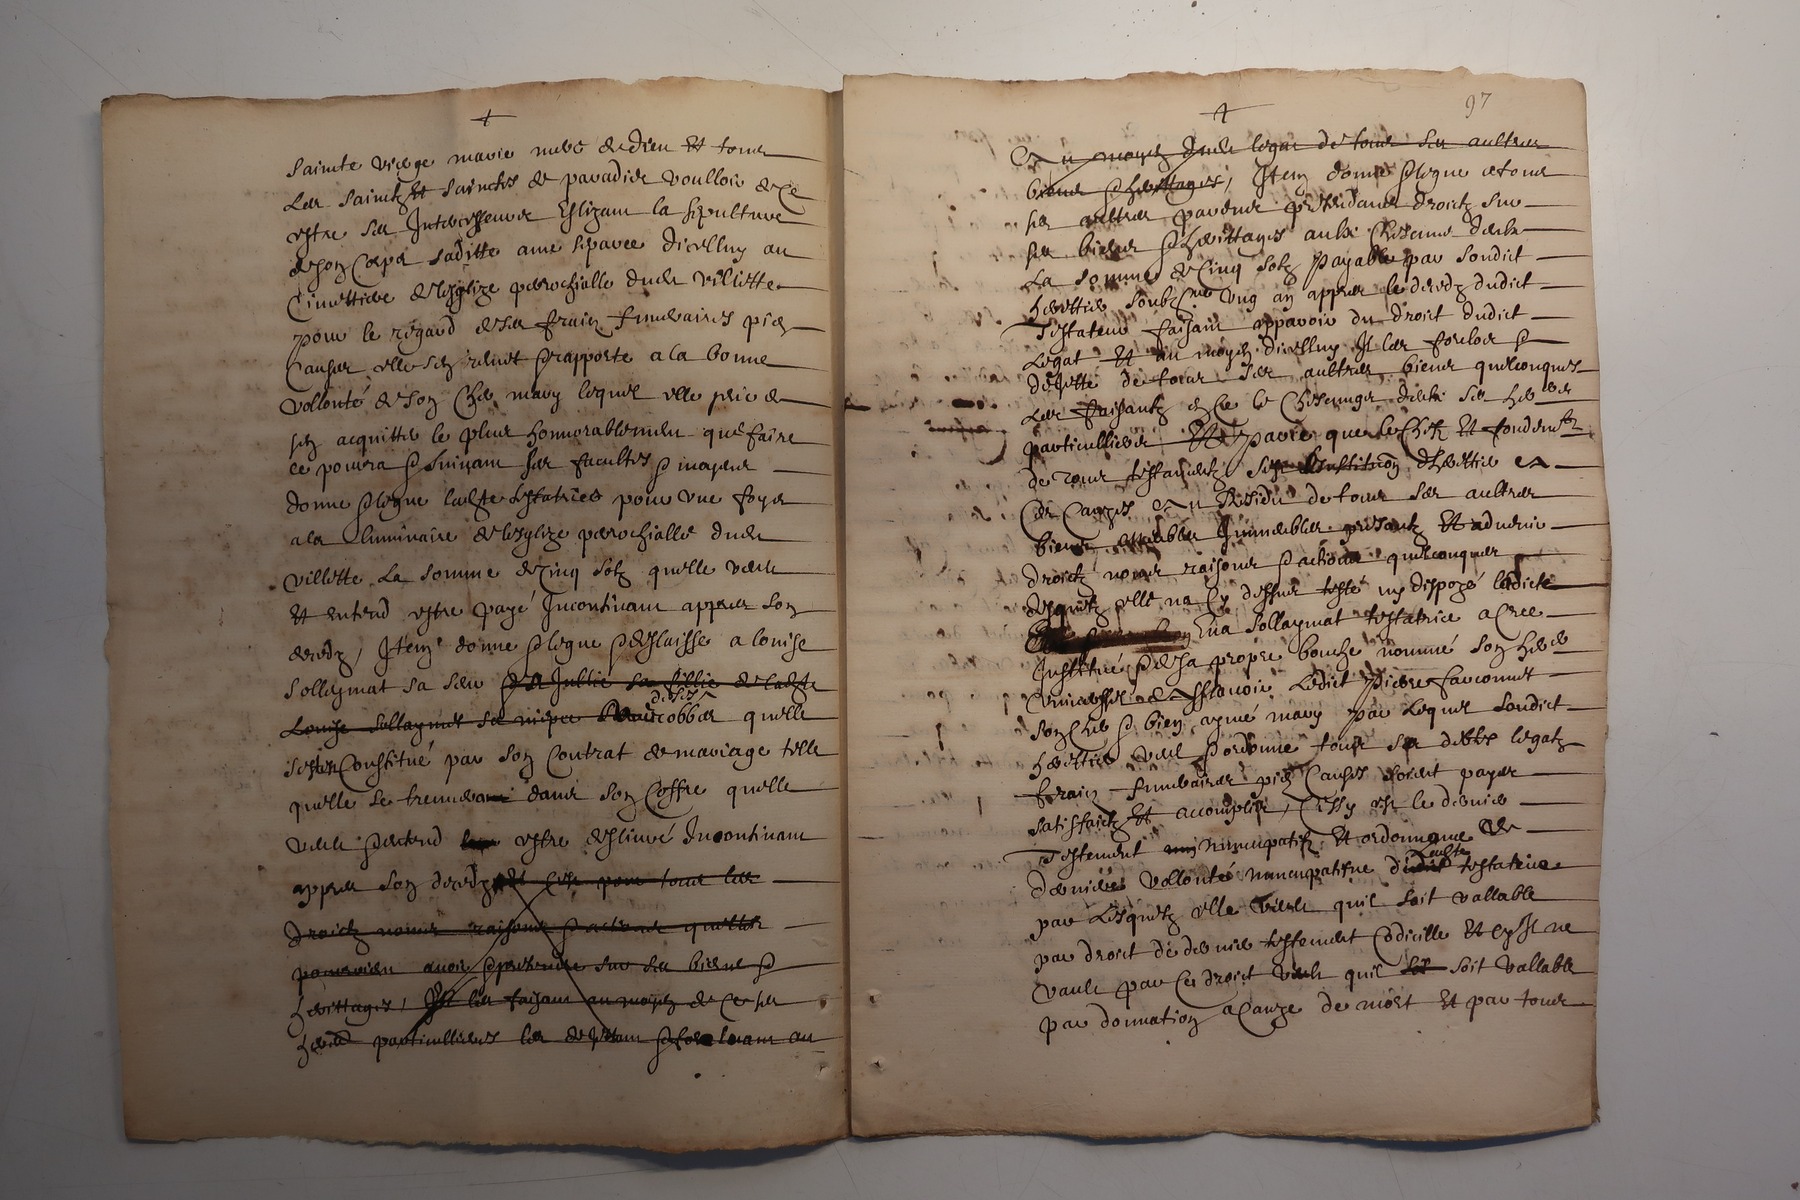 Sainte vierge marie mere de dieu Et tous
Les Saintz Et Sainctes de paradis voulloir de ce
estre ses Intercesseurs Eslizant la sepulture
de son Corps saditte ame separee dicelluy au
Cimettiere de lesglize parrochialle dudit villette
pour le regard de ses fraiz funeraires pies
Causes elle sen remet & rapporte a la bonne
vollonté de son Cher mary lequel elle prie de
sen acquitter le plus honnorablement que faire
ce pourra & suivant ses facultes & moyens
donne & legue ladite testatrice pour une foys
a la luminaire de lesglize parrochialle dudit
villette La somme de Cinq solz quelle veult
Et entend estre payé Incontinant appres son
decedz, Item donne & legue & deslaisse a louise
Sollaymat sa seur & a Jullie sa fillie de ladite
Louise Sollaymat sa niepce robbes quelle
Constitué par son Contrat de mariage telle
quelle se treuvera dans son Coffre quelle
veult & entend estre deslivré Incontinant
appres son decedz Et Ce pour tous les
droictz noms raisons & actions quelles
pourroient avoir & pretendre sur ses biens &
herittages, Et les faisant au moyen de Ce ses
particullieres les & forcluant au
Et au moyen dudit legat de tous ses aultres
biens & herittages, Item donne & legue a tous
ses aultres parens pretendans droictz sur
ses biens & herittages a Chescung deulx
La somme de Cinq solz payable par sondict
herittier ung an appres le decedz dudict
Testateur faisant apparoir du droict dudict
Legat Et au moyen dicelluy Il les forclos &
dejette de tous ses aultres biens quelconques
Les faisantz en Ce le Chescung deulx ses
particulliers Et parce que le Chef Et fondement
de tous testamentz est Linstitution dherittier
Au Residu de tous ses aultres
biens meubles Immeubles presentz Et advenir
droictz noms raisons & actions quelconques
desquelz elle na Cy dessus testé ny dispozé ladicte
Sollaymat testatrice a Cree
Institué & de sa propre bouche nommé son
universel Ascavoir Ledict Pierre
son Cher & bien aymé mary par Lequel sondict
herittier veult & ordonne tous ses debtes legatz
fraiz funeraires pies Causes soient payes
satisfaictz Et accomplis, Cessy est le dernier
Testement nuncupatif Et ordonnance de
derniere vollonté nuncupatifve testatrice
par Lesquelz elle veult quil soit vallable
par droict de dernier testement Codicille Et Sy Il ne
vault par Ces droict veult quil soit vallable
par donnation a Cauze de mort Et par tous
97